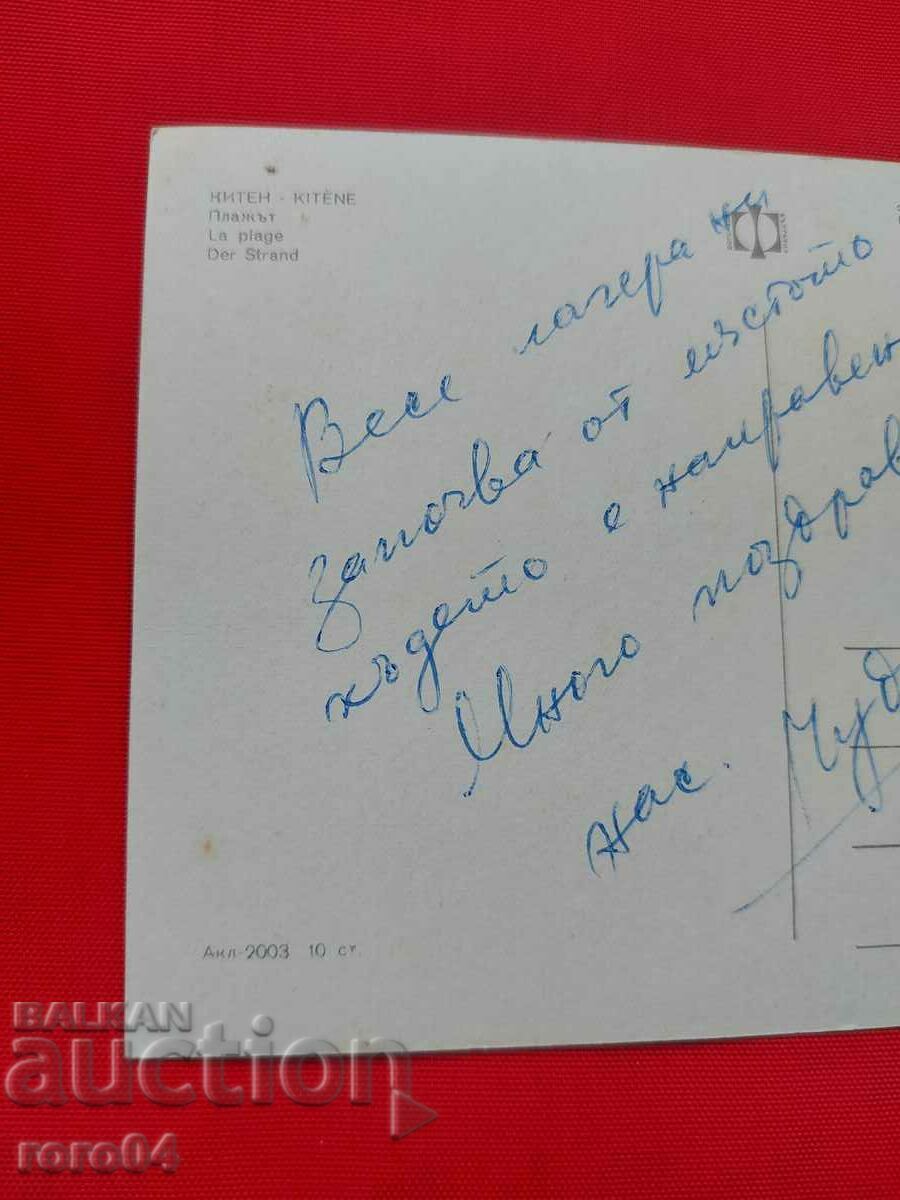 КИТЕН - KITÈNE
Плажът
La plage
Der Strand
лагера ни
започва от мястото
където е направен
Много поздрав
нас. Чуд
Акл-2003 10 ст.
BALKAN
auction
roro04